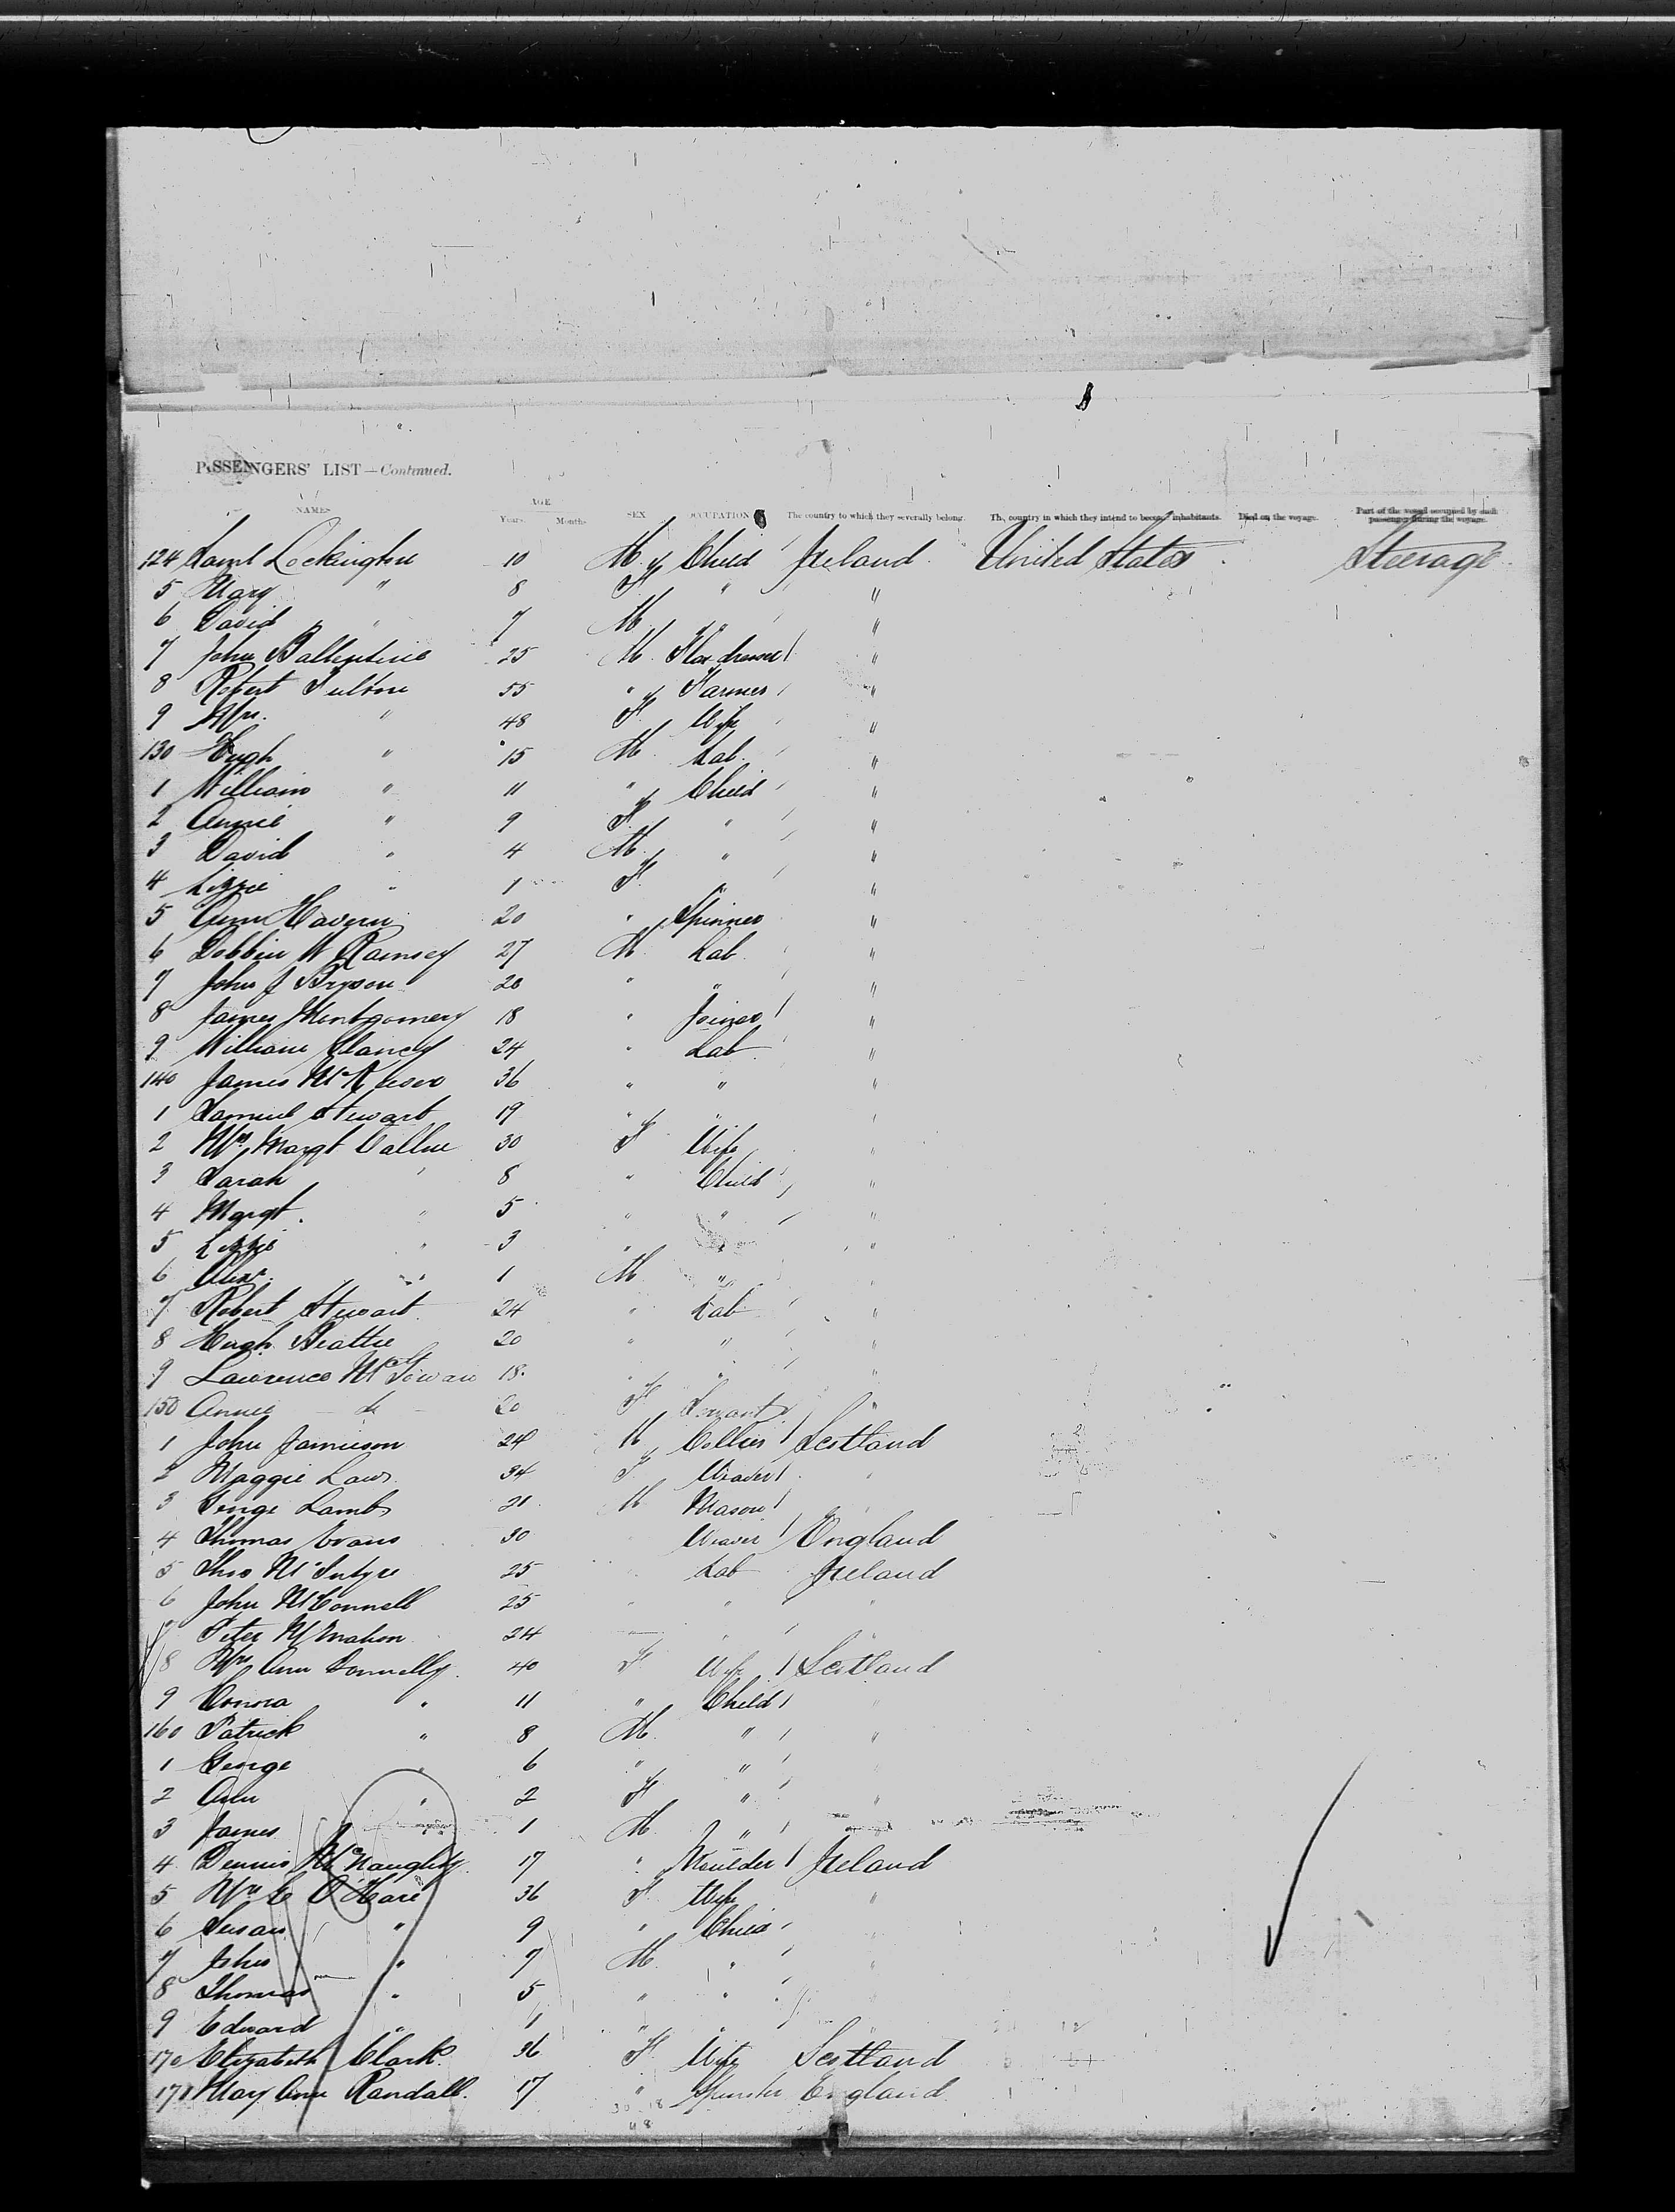 PASSENGERS' LIST—Continued.
NAMES AGE Years. Months. SEX OCCUPATION The country to which they severally belong. The country in which they intend to become inhabitants. Died on the voyage. Part of the vessel occupied by each passenger during the voyage.
124 Saml Lockington 10 M Child Ireland United States Steerage
5 Mary " 8 F " "
6 David " 7 M " "
7 John Ballentine 25 M Flax dresser "
8 Robert Fulton 55 " Farmer "
9 Mrs. " 48 F Wife "
130 Hugh " 15 M Lab. "
1 William " 11 " Child "
2 Annie " 9 F " "
3 David " 4 M " "
4 Lizzie " 1 F " "
5 Ann Havern 20 " Spinner "
6 Dobbin W Ramsey 27 M Lab. "
7 John J Bryson 20 " " "
8 James Montgomery 18 " Joiner "
9 William Clancy 24 " Lab "
140 James 36 " " "
1 Samuel Stewart 19 " " "
2 Mrs Margt 30 F Wife "
3 Sarah " 8 " Child "
4 Margt. " 5 " " "
5 Lizzie " 3 " " "
6 Alexr. " 1 M " "
7 Robert Stewart 24 " Lab "
8 Hugh Beattie 20 " " "
9 Lawrence McGowan 18. " " "
150 Annie do 20 F Servant "
1 John Jamieson 24 M Collier Scotland
2 Maggie Law 34 F Weaver "
3 George Lamb 21 M Mason "
4 Thomas Evans 30 Weaver England
5 Thos McIntyre 25 " Lab Ireland
6 John McConnell 25 " " "
7 Peter McMahon 24 " "
8 Mrs Ann Donnelly 40 F Wife Scotland
9 Honora " 11 " Child "
160 Patrick " 8 M " "
1 George " 6 " " "
2 Ann " 2 F " "
3 James " 1 M "
4 Dennis McNaughty 17 " Moulder Ireland
5 Mrs C O'Hare 36 F Wife "
6 Susan " 9 " Child "
7 John " 7 M " "
8 Thomas " 5 " " "
9 Edward " 1 " " "
170 Elizabeth Clark 36 F Wife Scotland
171 Mary Ann Randall. 17 " Spinster England